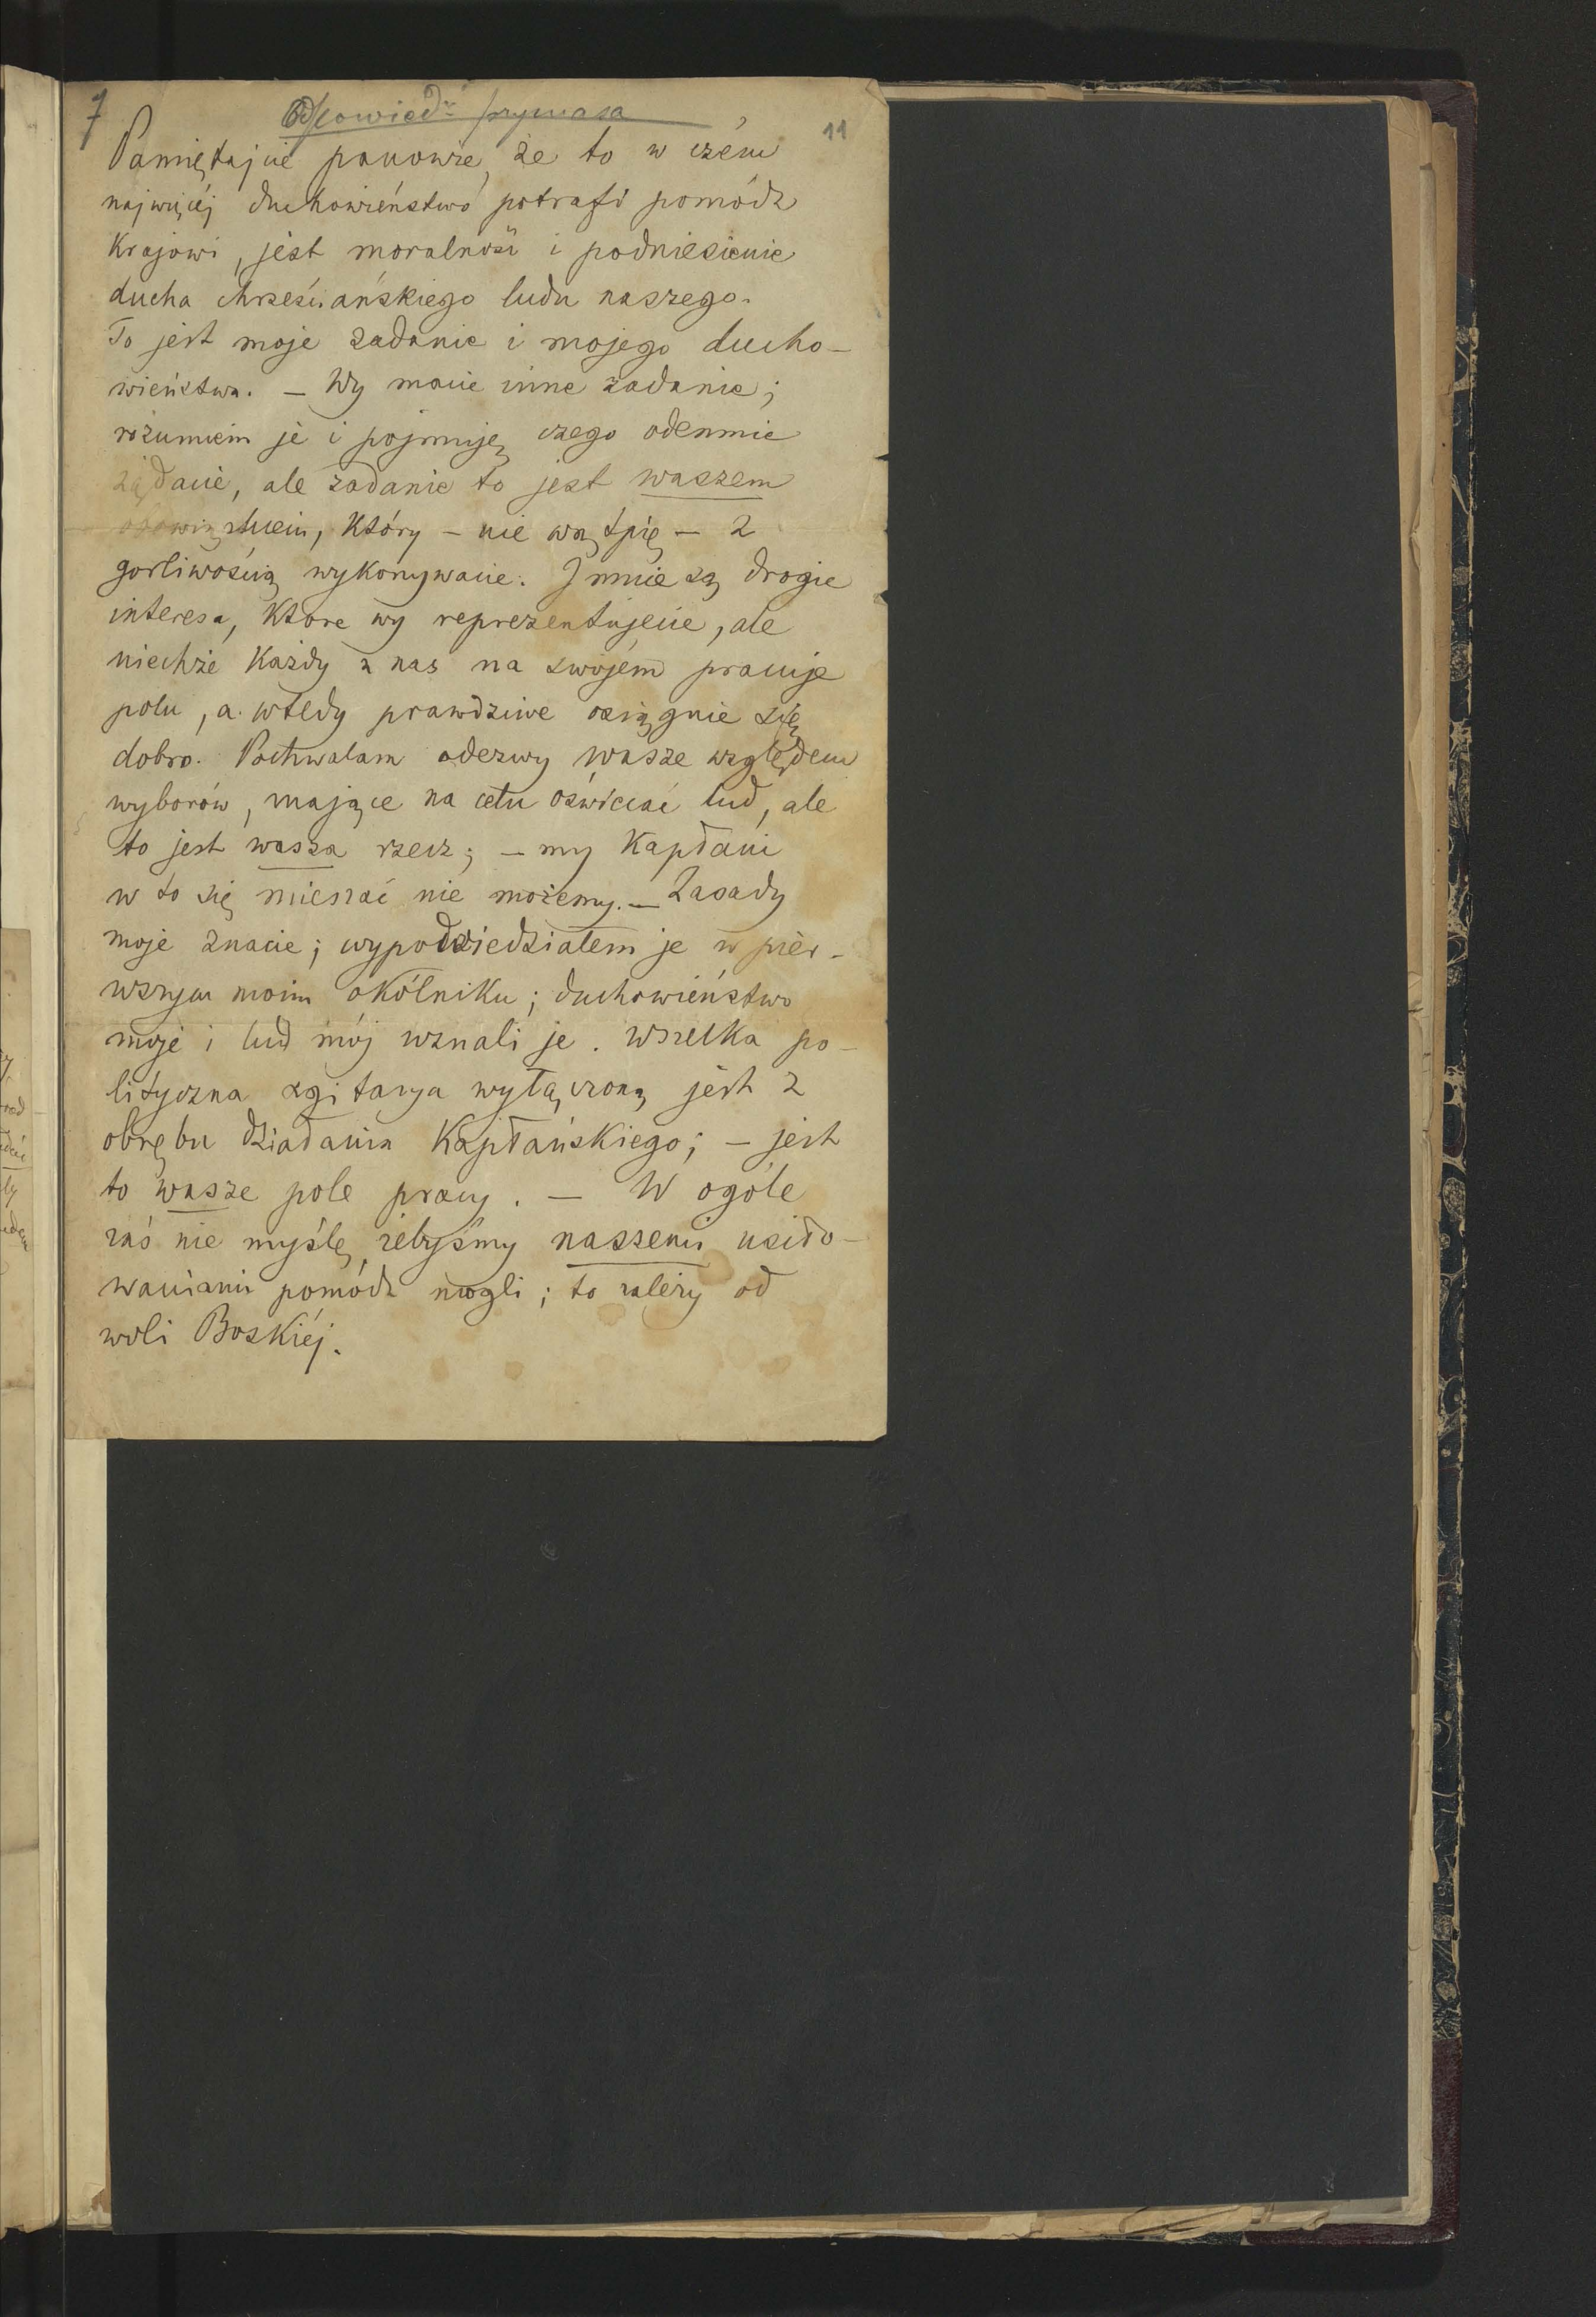 7
Odpowiedź prymasa
11
Pamiętajcie panowie, że to w czém
najwięcéj duchowieństwo potrafi pomódz
krajowi, jest moralność i podniesienie
ducha chrześciańskiego ludu naszego.
To jest moje zadanie i mojego ducho-
wieństwa. – Wy macie inne zadanie;
rozumiem je i pojmuję czego odemnie
żądacie, ale zadanie to jest waszem
obowiązkiem, który – nie wątpię – z
gorliwością wykonywacie. I mnie są drogie
interesa, które wy reprezentujecie, ale
niechże każdy z nas na swojém pracuje
polu, a wtedy prawdziwe osiągnie się
dobro. Pochwalam odezwy wasze względem
wyborów, mające na celu oświecać lud, ale
to jest wasza rzecz; – my kapłani
w to się mieszać nie możemy. – Zasady
moje znacie; wypowiedziałem je w pier-
wszym moim okólniku; duchowieństwo
moje i lud mój uznali je. Wszelka po-
lityczna agitacya wyłączoną jest z
obrębu działania kapłańskiego; – jest
to wasze pole pracy. – W ogóle
zaś nie myślę, żebyśmy naszemi usiło-
waniami pomódz mogli; to zależy od
woli Boskiéj.